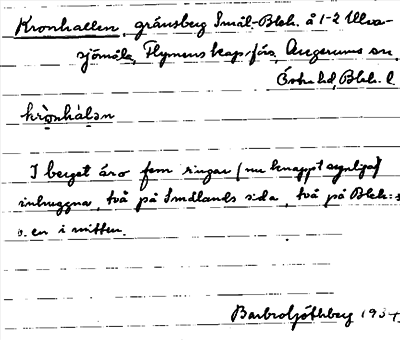 Kronhallen, gränsberg Smål.-Blek. å 1-2 Ulva-
sjömåla, Flymens kap.-förs, Augerums sn.
Östra hd, Blek. l.
krònhàlən
I berget äro fem ringar (nu knappt synliga)
inhuggna, två på Smålands sida, två på Blek:s
o. en i mitten.
Barbro Göthberg